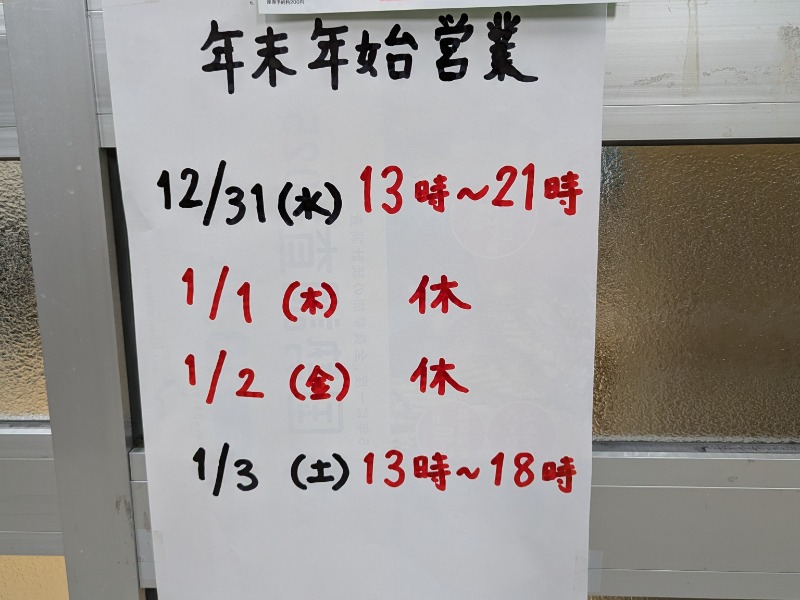 年末年始営業
12/31(水) 13時~21時
1/1(木) 休
1/2(金) 休
1/3(土) 13時~18時